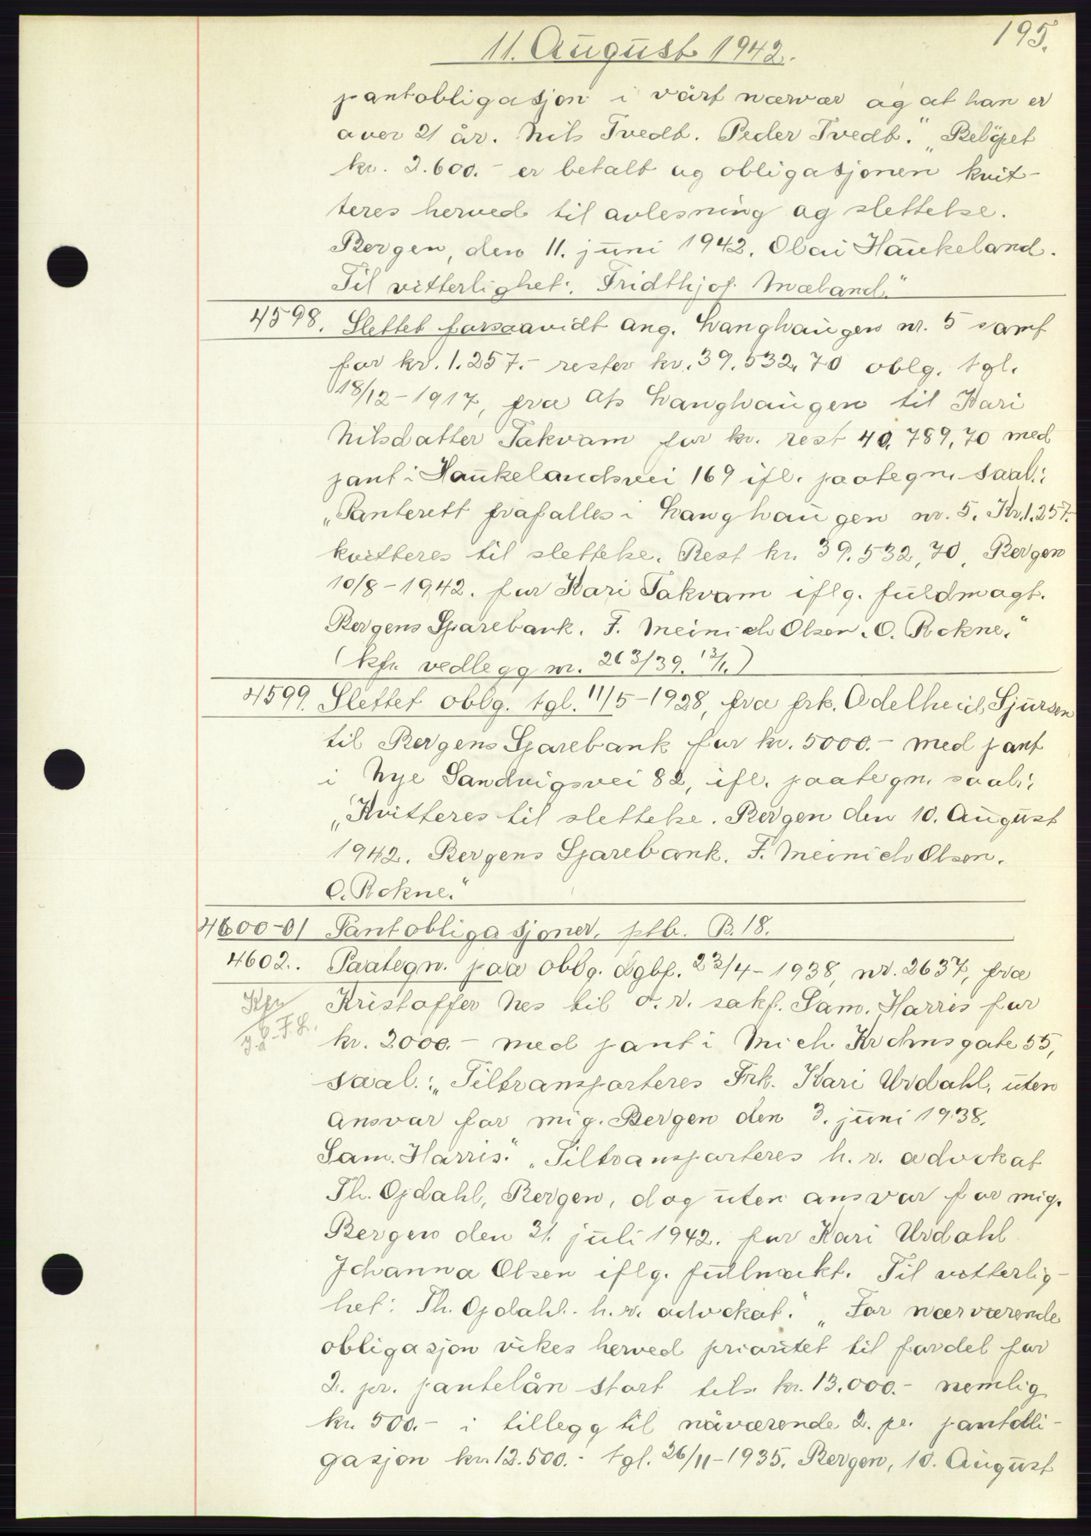 195.
11. August 1942.
pantobligasjon i vårt nærvær og at han er
over 21 år. Nils Tvedt. Peder Tvedt." „Beløpet
kr. 2.600.- er betalt og obligasjonen kvit-
teres herved til avlesning og slettelse.
Bergen, den 11. juni 1942. Olai Haukeland.
Til vitterlighet: Fridthjof Mæland."
4598. Slettet forsaavidt ang. Langhaugen nr. 5 samt
for kr. 1.257.- rester kr. 39.532,70 oblg. tgl.
18/12-1917, fra A/s Langhaugen til Kari
Nilsdatter Takvam for kr. rest 40.789,70 med
pant i Haukelandsvei 169 ifl. paategn. saal.:
„Panterett frafalles i Langhaugen nr. 5. Kr. 1.257.-
kvitteres til slettelse. Rest kr. 39.532,70. Bergen
10/8-1942. for Kari Takvam iflg. fuldmagt.
Bergens Sparebank. F. Meinich Olsen. O. Rokne."
(kfr. vedlegg nr. 263/39. 13/1.)
4599. Slettet oblg. tgl. 11/5-1928, fra frk. Adelheid Sjursen
til Bergens Sparebank for kr. 5000.- med pant
i Nye Sandvigsvei 82, ifl. paategn. saal.:
„Kvitteres til slettelse. Bergen den 10. August
1942. Bergens Sparebank. F. Meinich Olsen.
O. Rokne."
4600-01 Pantobligasjoner, ptb. B.18.
4602. Paategn. paa oblg. dgbf. 23/4-1938, nr. 2637, fra
Kfr Kristoffer Nes til o.r. sakf. Sam. Harris for
kr. 2000.- med pant i Mich. Krohnsgate 55,
saal.: „Tiltransporteres Frk. Kari Urdahl, uten
ansvar for mig. Bergen den 3. juni 1938.
Sam. Harris." „Tiltransporteres h.r. advokat
Th. Opdahl, Bergen, dog uten ansvar for mig.
Bergen den 31. juli 1942. for Kari Urdahl
Johanna Olsen iflg. fullmakt. Til vitterlig-
het: Th. Opdahl. h.r. advokat." „For nærværende
obligasjon vikes herved prioritet til fordel for
2. pr. pantelån stort tils. kr. 13.000.- nemlig
kr. 500.- i tillegg til nåværende 2. pr. pantobli-
gasjon kr. 12.500.- tgl. 26/11-1935. Bergen, 10. August